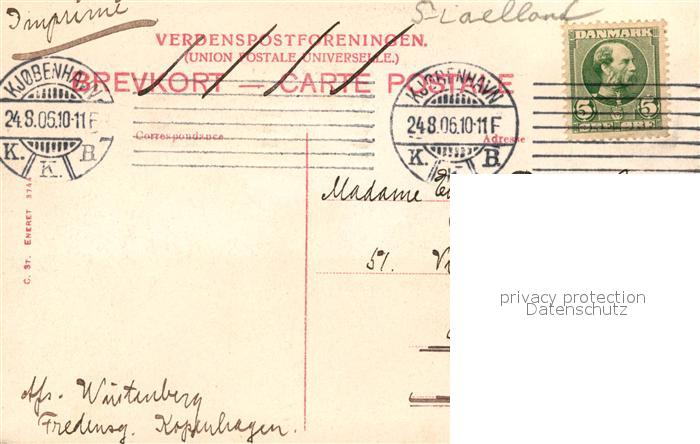 Imprimé
Sjaelland
VERDENSPOSTFORENINGEN.
(UNION POSTALE UNIVERSELLE.)
BREVKORT — CARTE POSTALE
DANMARK
5 5
ØRE ØRE
KJØBENHAVN
24.8.06.10-11 F
K. K. B.
KJØBENHAVN
24.8.06.10-11 F
K. K. B.
Correspondance
Adresse
C. ST. ENERET 3744
Madame
51.
privacy protection
Datenschutz
Afs. Wüstenberg
Fredensg. Kopenhagen.